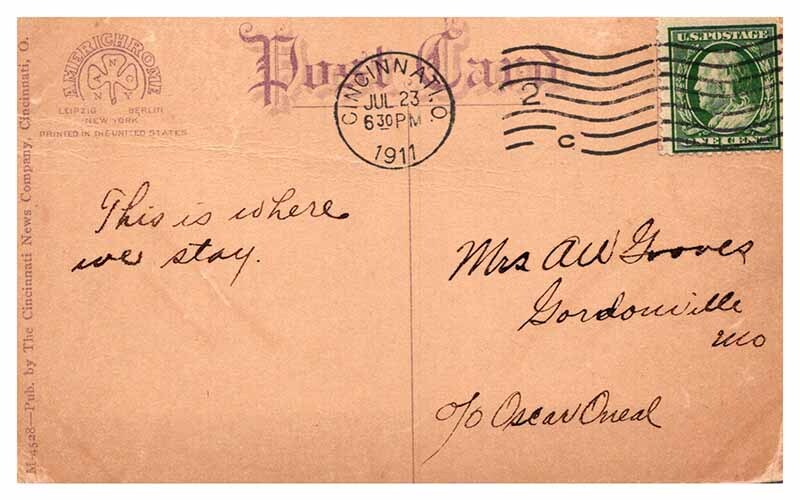 Post Card
AMERICHROME
ANCO
LEIPZIG BERLIN
NEW YORK
PRINTED IN THE UNITED STATES
CINCINNATI, O.
JUL 23
6 30 PM
1911
2
C
U.S. POSTAGE
ONE CENT
This is where
we stay.
Mrs A W Groves
Gordonville
Mo
c/o Oscar Oneal
M-4528—Pub. by The Cincinnati News Company, Cincinnati, O.